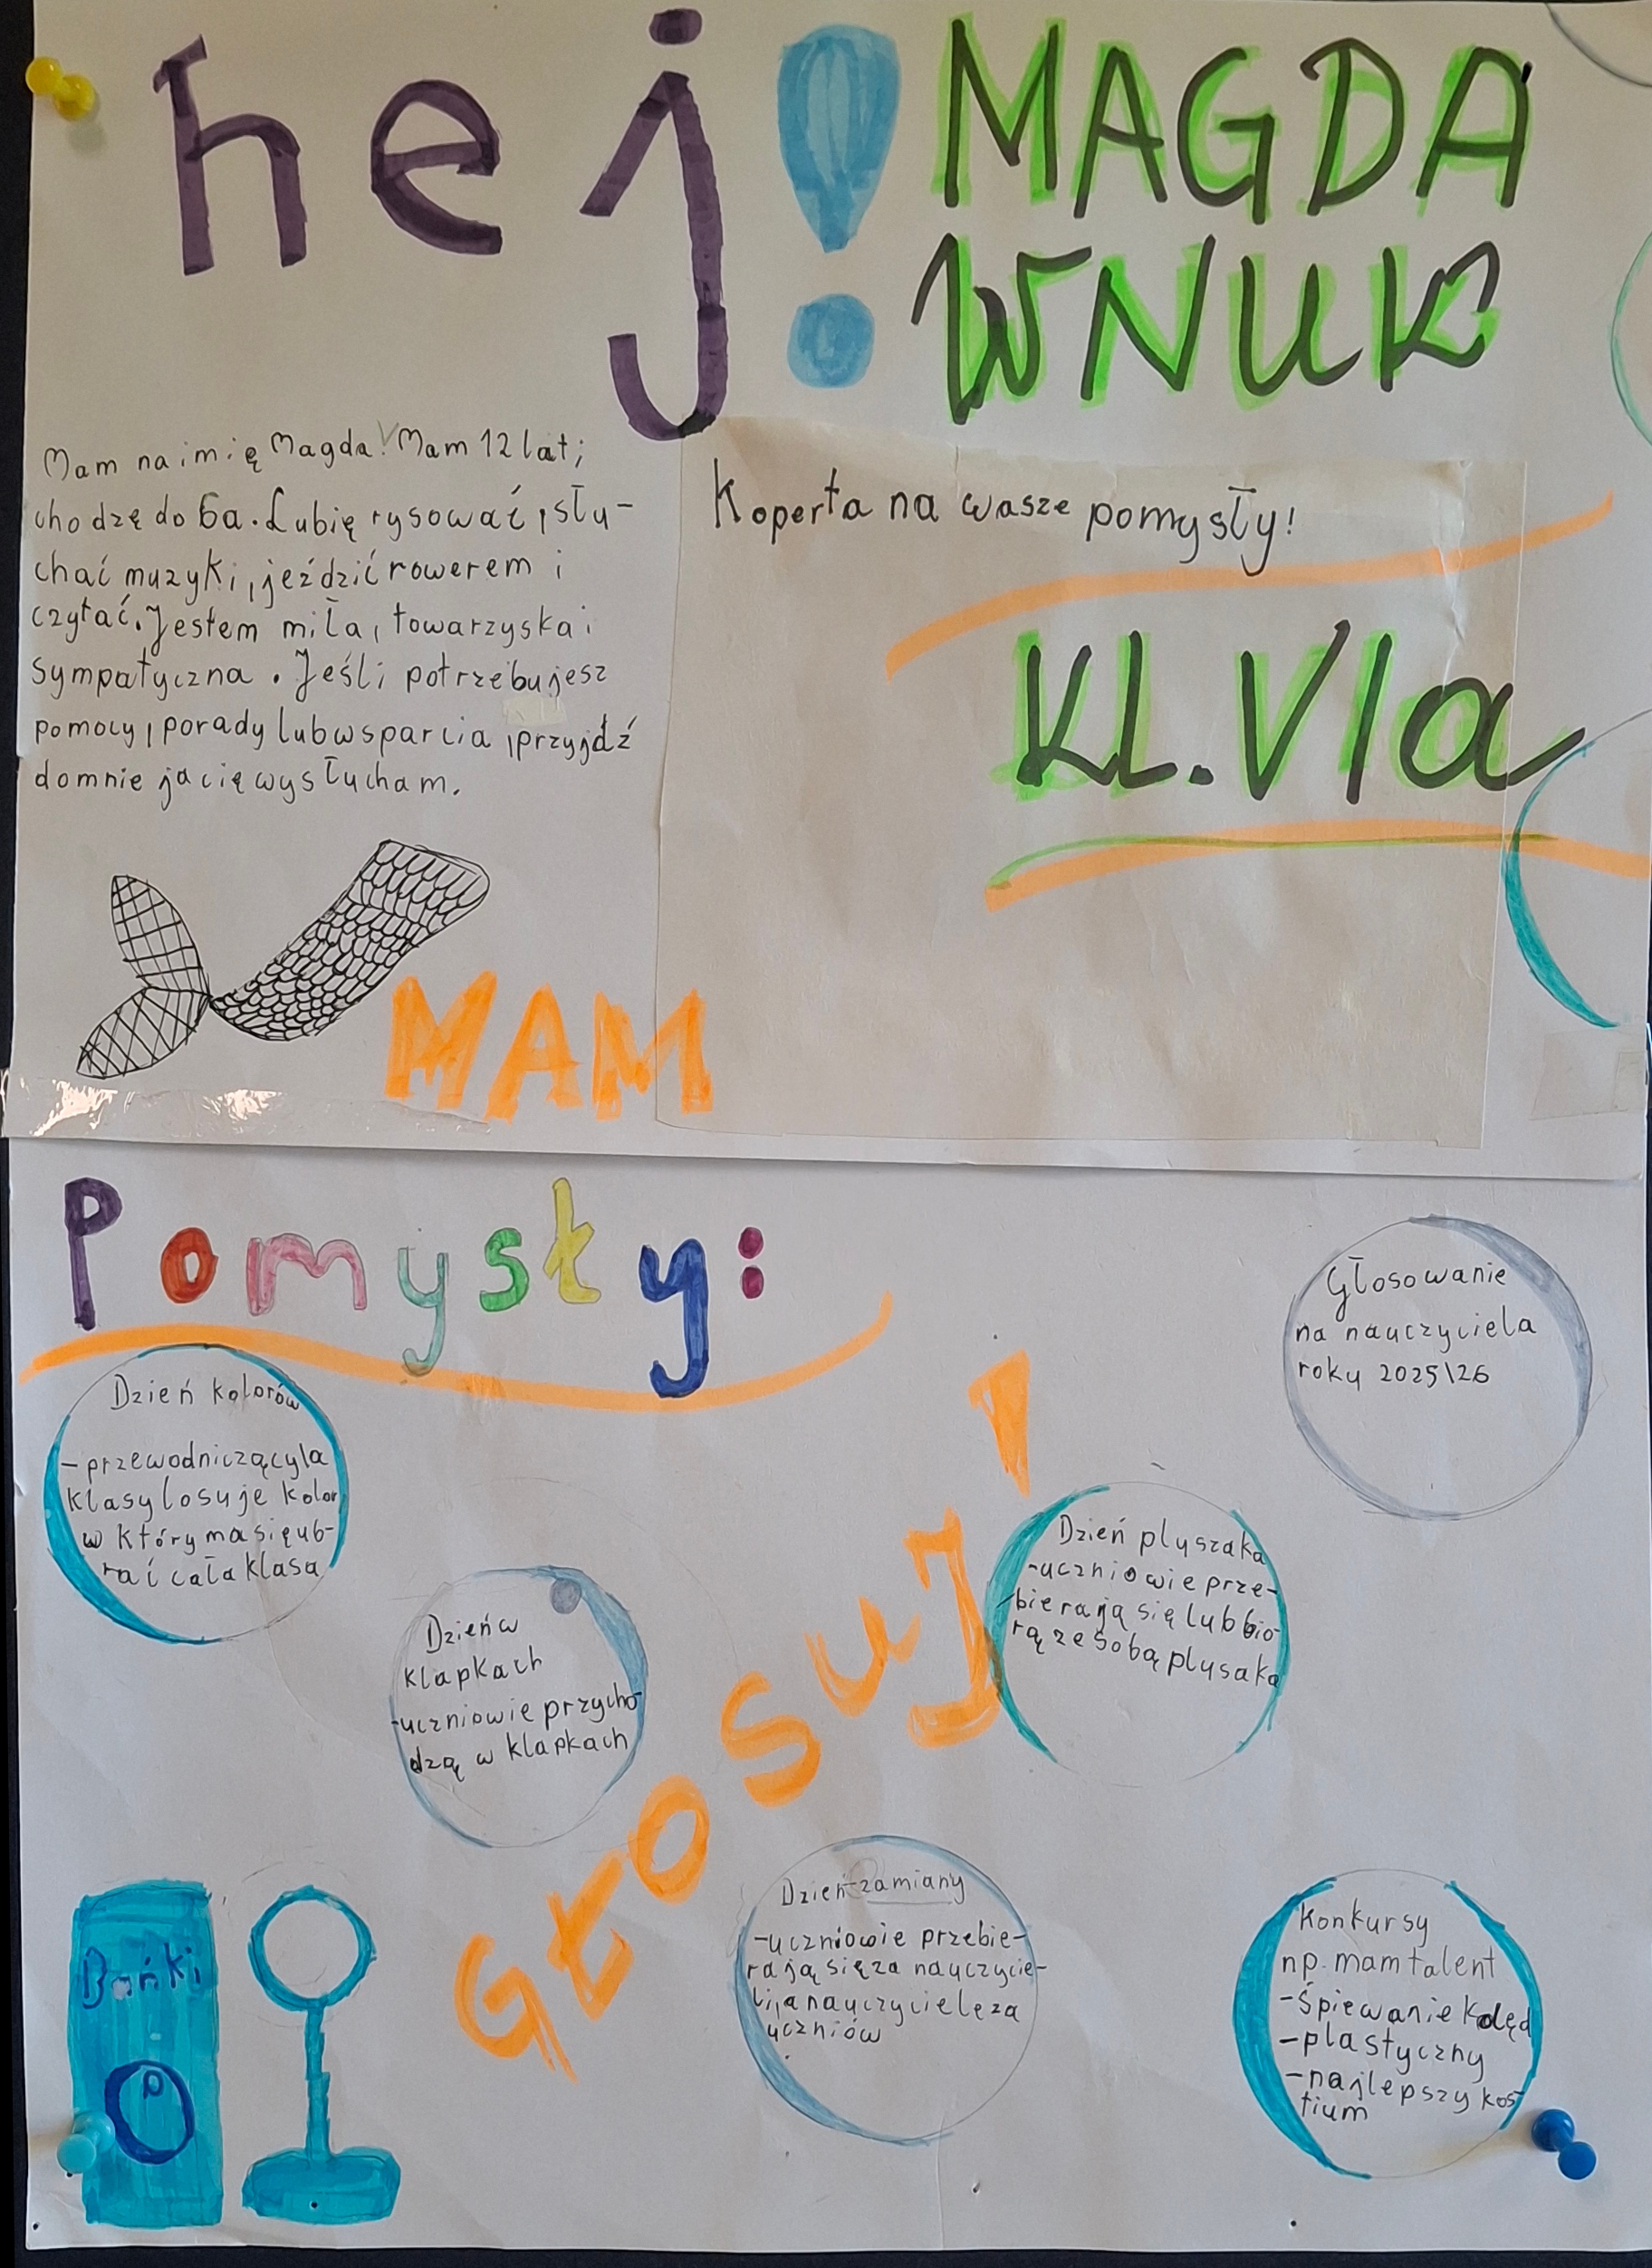 hej!
MAGDA
WNUK
Mam na imię Magda! Mam 12 lat i
chodzę do 6a. Lubię rysować, słu-
chać muzyki, jeździć rowerem i
czytać. Jestem miła, towarzyska i
sympatyczna. Jeśli potrzebujesz
pomocy, porady lub wsparcia, przyjdź
do mnie ja cię wysłucham.
Koperta na wasze pomysły!
KL. VIa
MAM
Pomysły:
Głosowanie
na nauczyciela
roku 2025\26
Dzień kolorów
- przewodniczący/a
klasy losuje kolor
w który ma się ub-
rać cała klasa
Dzień w
klapkach
-uczniowie przycho-
dzą w klapkach
GŁOSUJ!
Dzień pluszaka
-uczniowie prze-
bierają się lub bio-
rą ze sobą plusaka
Dzień zamiany
-uczniowie przebie-
rają się za nauczycie-
li, a nauczyciele za
uczniów
Konkursy
np. mam talent
-śpiewanie kolęd
-plastyczny
-najlepszy kos-
tium
Bańki